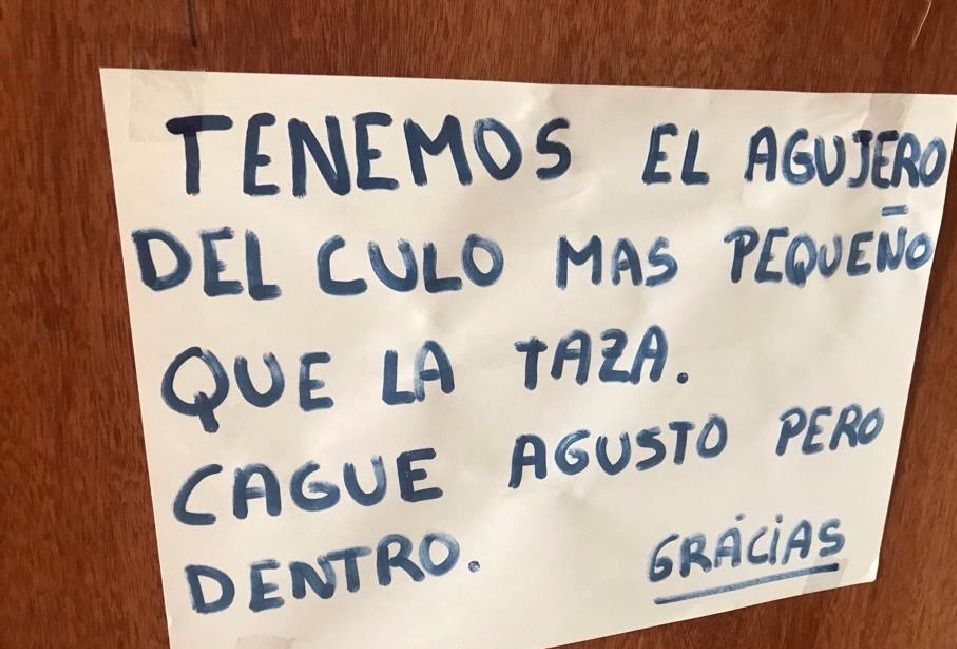 TENEMOS EL AGUJERO
DEL CULO MAS PEQUEÑO
QUE LA TAZA.
CAGUE AGUSTO PERO
DENTRO. GRÁCIAS